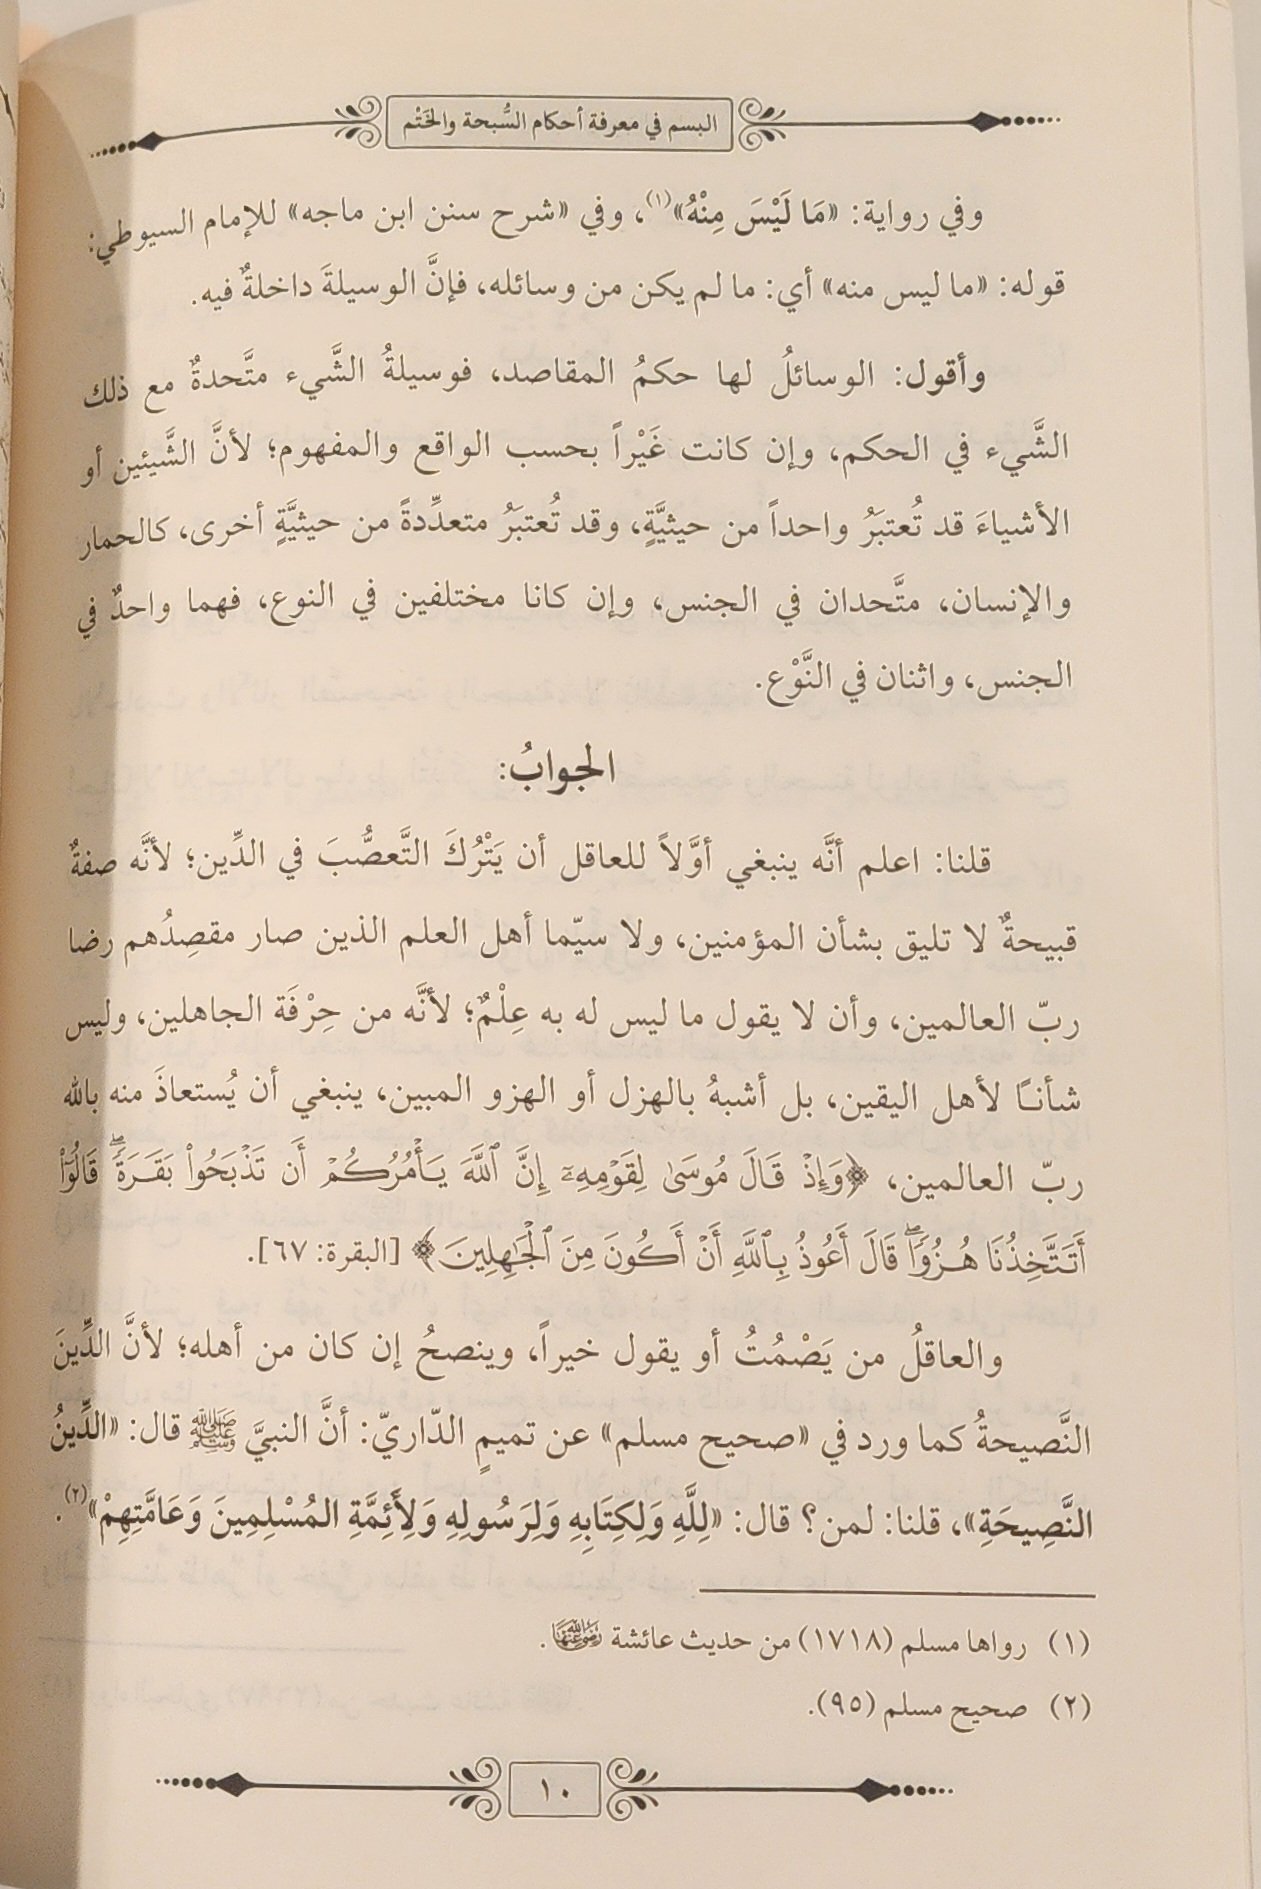 البسم في معرفة أحكام السُّبحة والخَتْم
وفي رواية: «مَا لَيْسَ مِنْهُ»(١)، وفي «شرح سنن ابن ماجه» للإمام السيوطي:
قوله: «ما ليس منه» أي: ما لم يكن من وسائله، فإنَّ الوسيلةَ داخلةٌ فيه.
وأقول: الوسائلُ لها حكمُ المقاصد، فوسيلةُ الشَّيء متَّحدةٌ مع ذلك
الشَّيء في الحكم، وإن كانت غَيْراً بحسب الواقع والمفهوم؛ لأنَّ الشَّيئين أو
الأشياءَ قد تُعتبَرُ واحداً من حيثيَّةٍ، وقد تُعتبَرُ متعدِّدةً من حيثيَّةٍ أخرى، كالحمار
والإنسان، متَّحدان في الجنس، وإن كانا مختلفين في النوع، فهما واحدٌ في
الجنس، واثنان في النَّوْع.
الجوابُ:
قلنا: اعلم أنَّه ينبغي أوَّلاً للعاقل أن يَتْرُكَ التَّعصُّبَ في الدِّين؛ لأنَّه صفةٌ
قبيحةٌ لا تليق بشأن المؤمنين، ولا سيّما أهل العلم الذين صار مقصِدُهم رضا
ربّ العالمين، وأن لا يقول ما ليس له به عِلْمٌ؛ لأنَّه من حِرْفَة الجاهلين، وليس
شأنًا لأهل اليقين، بل أشبهُ بالهزل أو الهزو المبين، ينبغي أن يُستعاذَ منه بالله
ربّ العالمين، ﴿وَإِذْ قَالَ مُوسَىٰ لِقَوْمِهِۦٓ إِنَّ ٱللَّهَ يَأْمُرُكُمْ أَن تَذْبَحُوا۟ بَقَرَةً ۖ قَالُوٓا۟
أَتَتَّخِذُنَا هُزُوًا ۖ قَالَ أَعُوذُ بِٱللَّهِ أَنْ أَكُونَ مِنَ ٱلْجَـٰهِلِينَ﴾ [البقرة: ٦٧].
والعاقلُ من يَصْمُتُ أو يقول خيراً، وينصحُ إن كان من أهله؛ لأنَّ الدِّينَ
النَّصيحةُ كما ورد في «صحيح مسلم» عن تميمٍ الدّاريّ: أنَّ النبيَّ ﷺ قال: «الدِّينُ
النَّصِيحَةِ»، قلنا: لمن؟ قال: «لِلَّهِ وَلِكِتَابِهِ وَلِرَسُولِهِ وَلِأَئِمَّةِ المُسْلِمِينَ وَعَامَّتِهِمْ»(٢).
(١) رواها مسلم (١٧١٨) من حديث عائشة رضي الله عنها.
(٢) صحيح مسلم (٩٥).
١٠